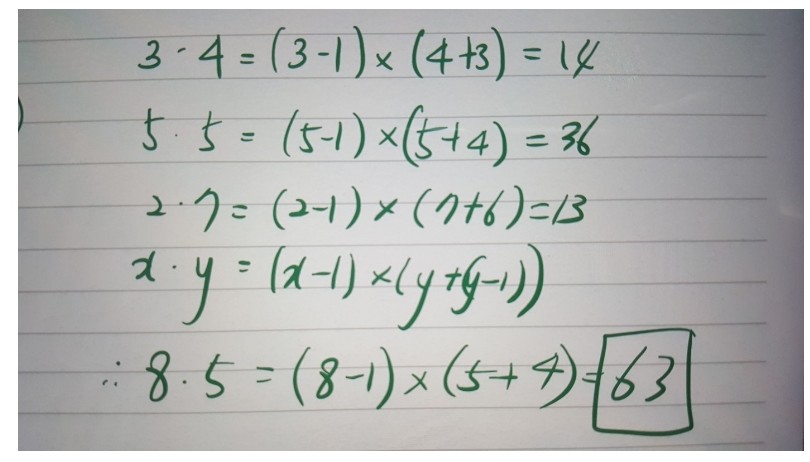 3 · 4 = (3-1) × (4+3) = 14
5 · 5 = (5-1) × (5+4) = 36
2 · 7 = (2-1) × (7+6) = 13
x · y = (x-1) × (y+(y-1))
∴ 8 · 5 = (8-1) × (5+4) = 63